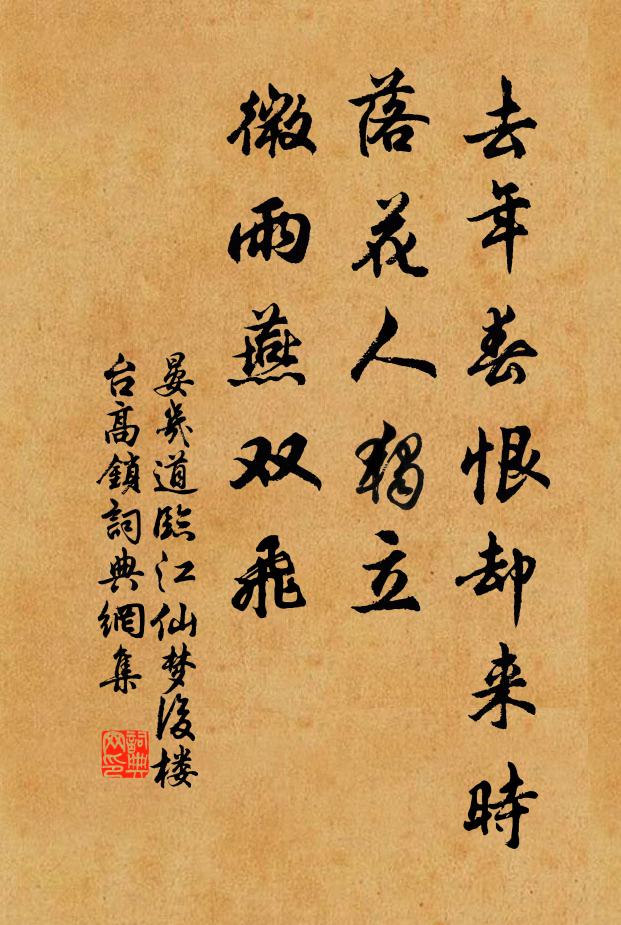 去年春恨却来時
落花人獨立
微雨燕双飛
晏幾道臨江仙梦後楼
台高鎖詞典網集
詞典
网印